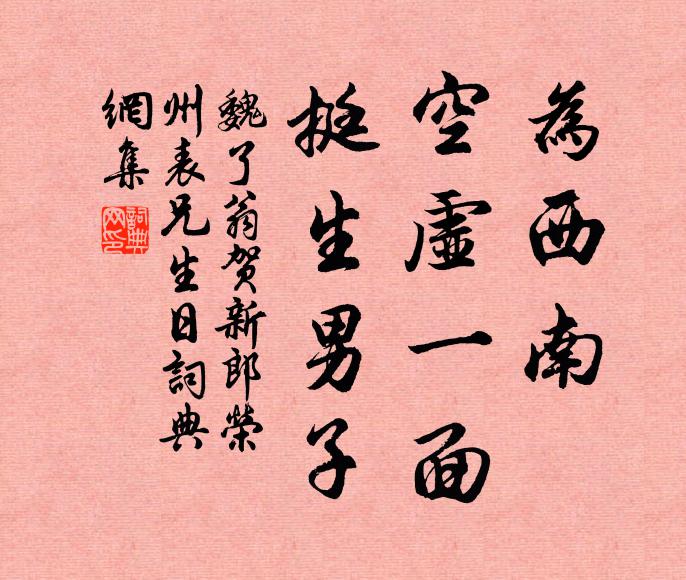 為西南
空虛一面
挺生男子
魏了翁賀新郎榮
州表兄生日詞典
網集
詞典
网印